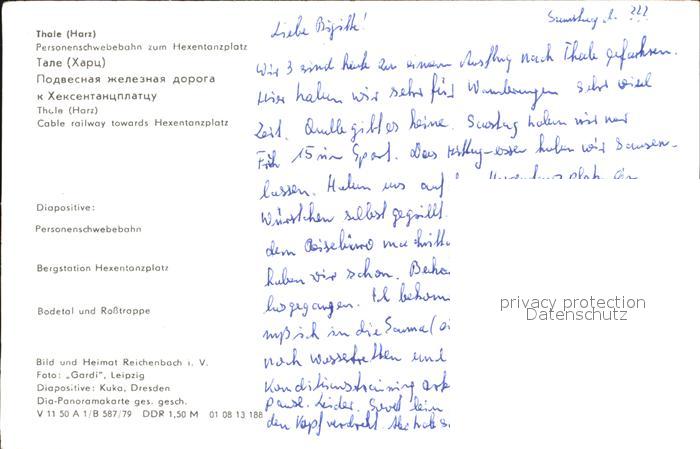 Thale (Harz)
Personenschwebebahn zum Hexentanzplatz
Тале (Харц)
Подвесная железная дорога
к Хексентанцплатцу
Thale (Harz)
Cable railway towards Hexentanzplatz
Diapositive:
Personenschwebebahn
Bergstation Hexentanzplatz
Bodetal und Roßtrappe
Bild und Heimat Reichenbach i. V.
Foto: „Gardi", Leipzig
Diapositive: Kuka, Dresden
Dia-Panoramakarte ges. gesch.
V 11 50 A 1/B 587/79 DDR 1,50 M 01 08 13 188
Samstag, d. ???
Liebe Birgitt!
Wir 3 sind heute zu einem Ausflug nach Thale gefahren.
Hier haben wir sehr für Wanderungen sehr viel
Zeit. gibt es keine. Samstag haben wir nur
Früh 15 min Sport. Das Mittag-essen haben wir sausen-
lassen. Haben uns auf
Würstchen selbst gegrillt.
dem Reisebüro
haben wir schon.
losgegangen. Ich
muß ich in die Sauna
noch wassertreten und
Konditionstraining
Pause. Leider.
den Kopf verdreht.
privacy protection
Datenschutz